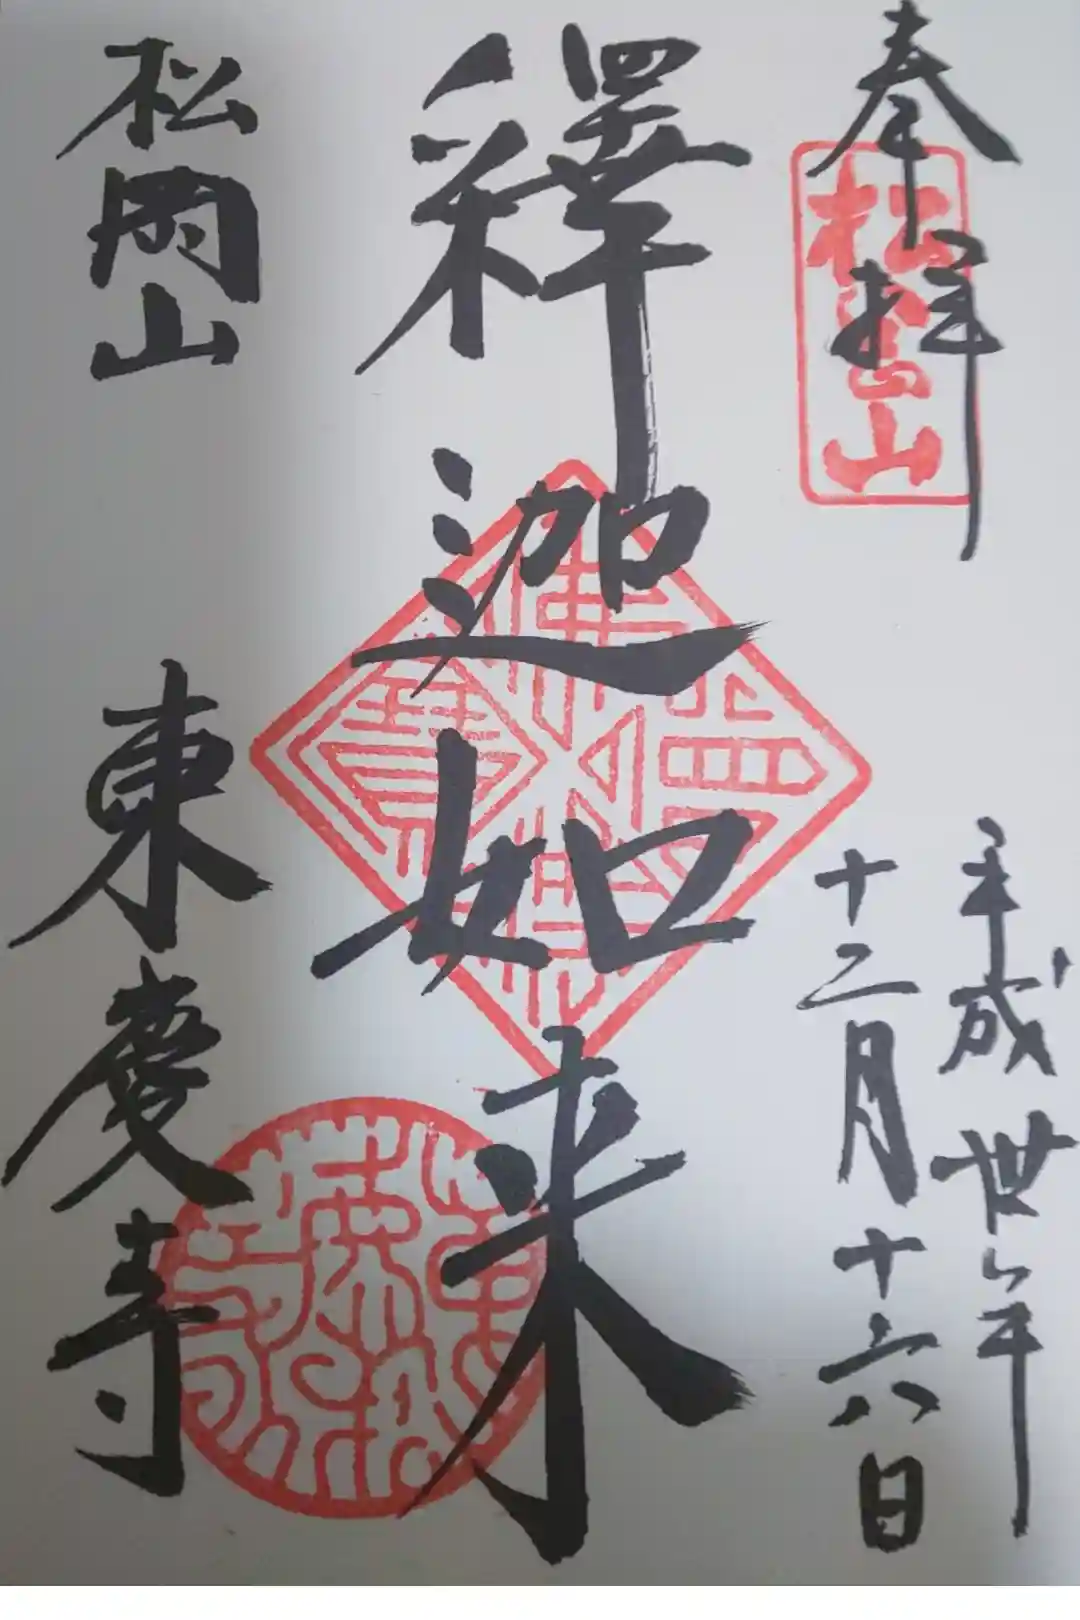 奉拝
松岡山
平成卅年
十二月十六日
釋迦如来
佛法僧寶
松岡山
東慶寺